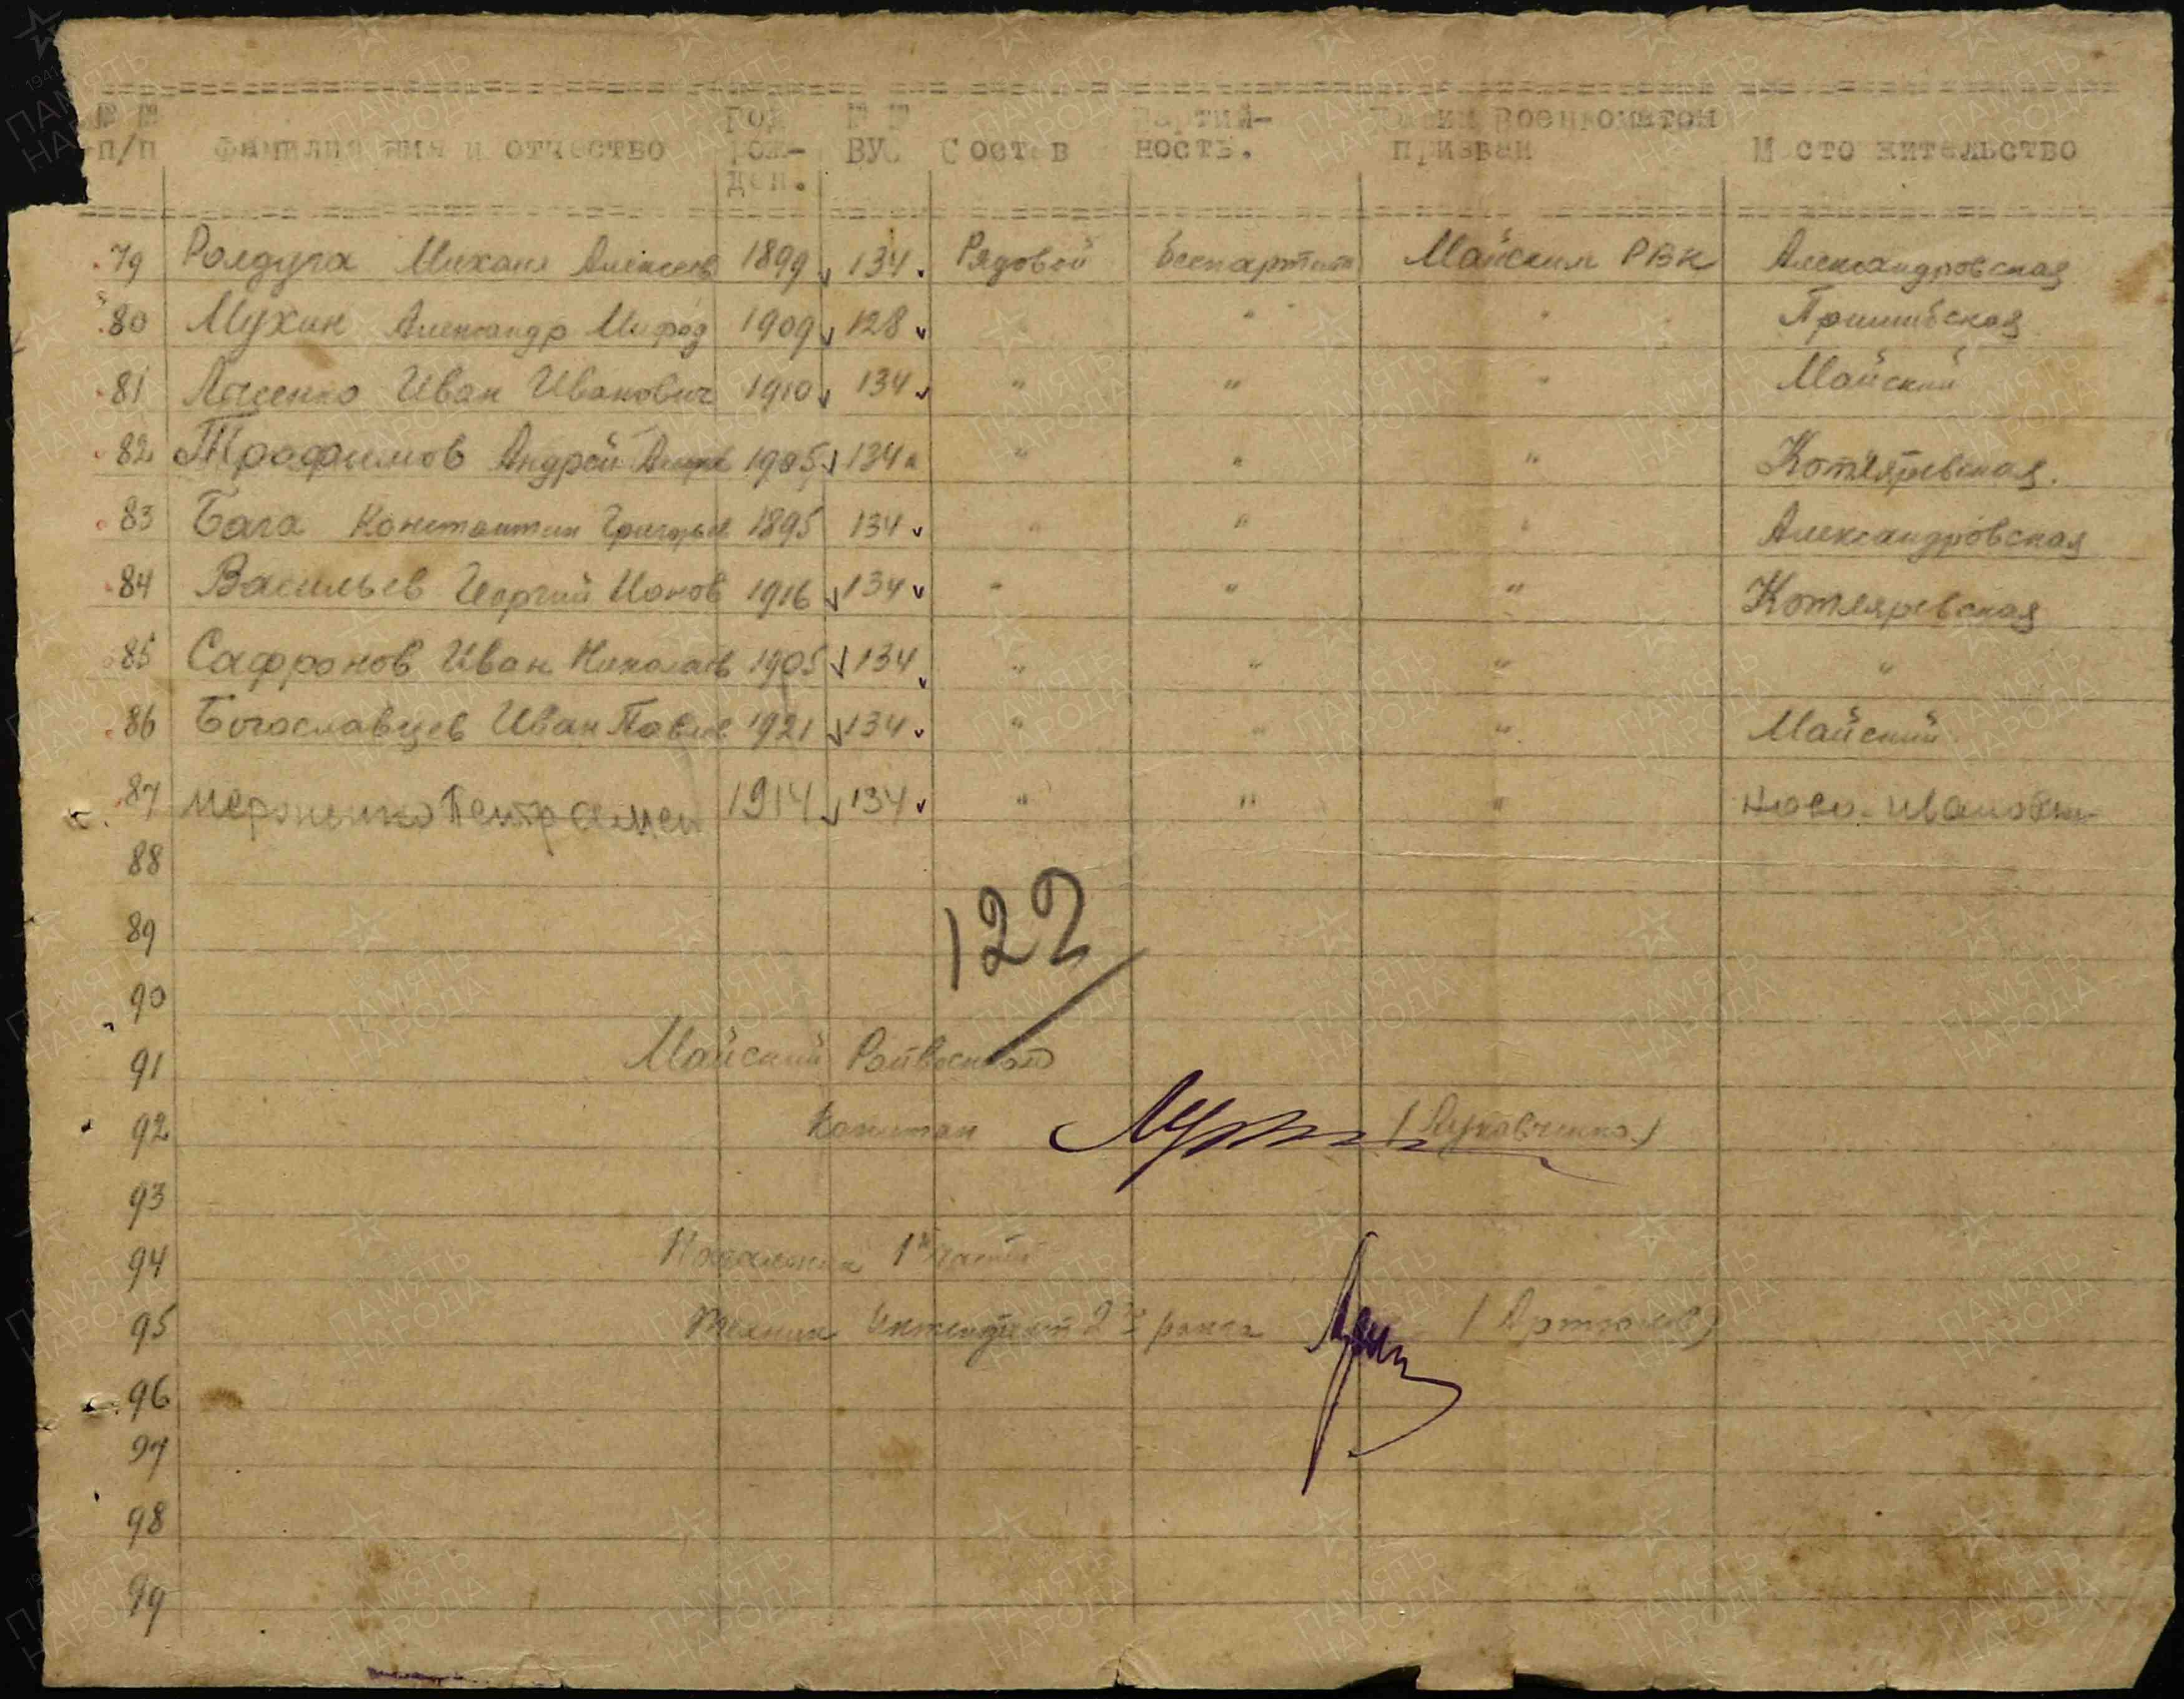 № № п/п Фамилия имя и отчество Год рож-ден. № № ВУС Состав Партий-ность. Каким Военкоматом призван Место жительство
79 Ролдуга Михаил Алексеев 1899 134 Рядовой беспартийн Майским РВК Александровская
80 Мухин Александр Мифод 1909 128 " " " Пришибская
81 Иван Иванович 1910 134 " " " Майский
82 Трофимов Андрей Андре 1905 134 " " " Котляревская.
83 Бага Константин Григорьев 1895 134 " " " Александровская
84 Васильев Георгий Ионов 1916 134 " " " Котляревская
85 Сафронов Иван Николаев 1905 134 " " " "
86 Богославцев Иван Павлов 1921 134 " " " Майский
87 Петр Семен 1914 134 " " " Ново-Ивановка
88
89
122
90
91 Майский Райвоенком
92 Капитан (Луковченко)
93
94 Начальник 1й части
95 Техник Интендант 2го ранга (Артюхов)
96
97
98
99